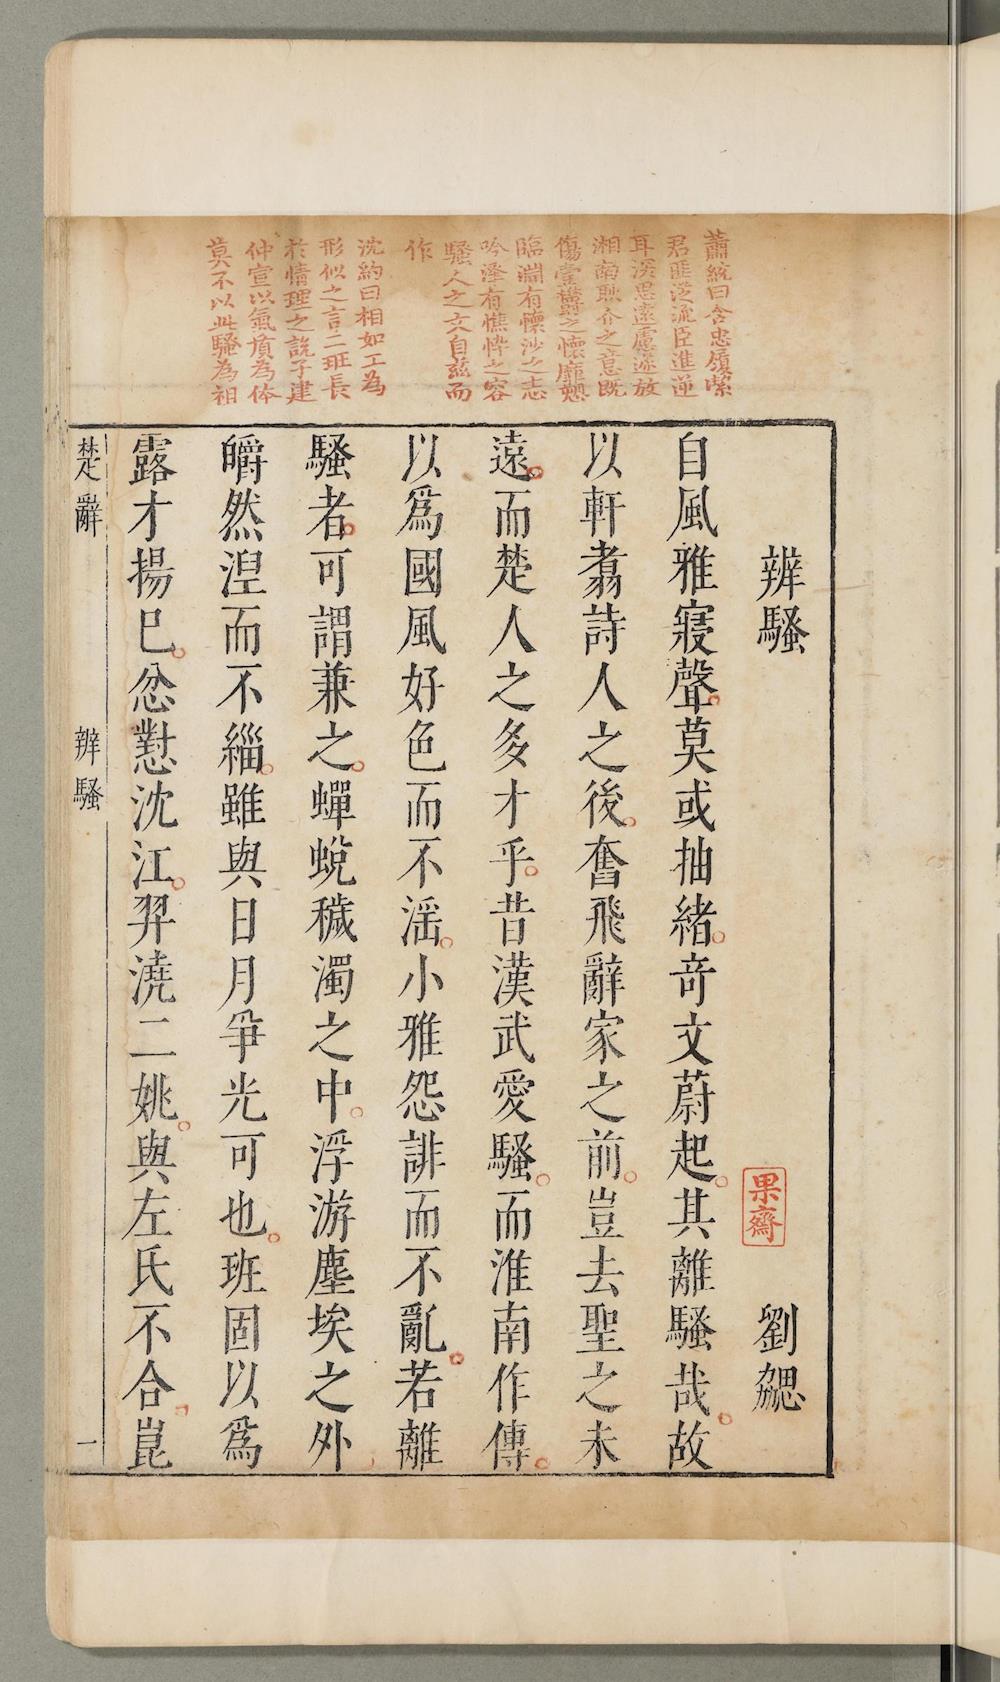 蕭統曰含忠履潔
君匪從流臣進逆
耳深思遠慮遂放
湘南耿介之意既
傷壹鬱之懷靡愬
臨淵有懷沙之志
吟澤有憔悴之容
騷人之文自茲而
作
沈約曰相如工為
形似之言二班長
於情理之說子建
仲宣以氣質為体
莫不以此騷為祖
辨騷 劉勰
果齋
自風雅寢聲莫或抽緒奇文蔚起其離騷哉故
以軒翥詩人之後奮飛辭家之前豈去聖之未
遠而楚人之多才乎昔漢武愛騷而淮南作傳
以爲國風好色而不滛小雅怨誹而不亂若離
騷者可謂兼之蟬蛻穢濁之中浮游塵埃之外
皭然涅而不緇雖與日月爭光可也班固以爲
露才揚已忿懟沈江羿澆二姚與左氏不合崑
楚辭 辨騷 一